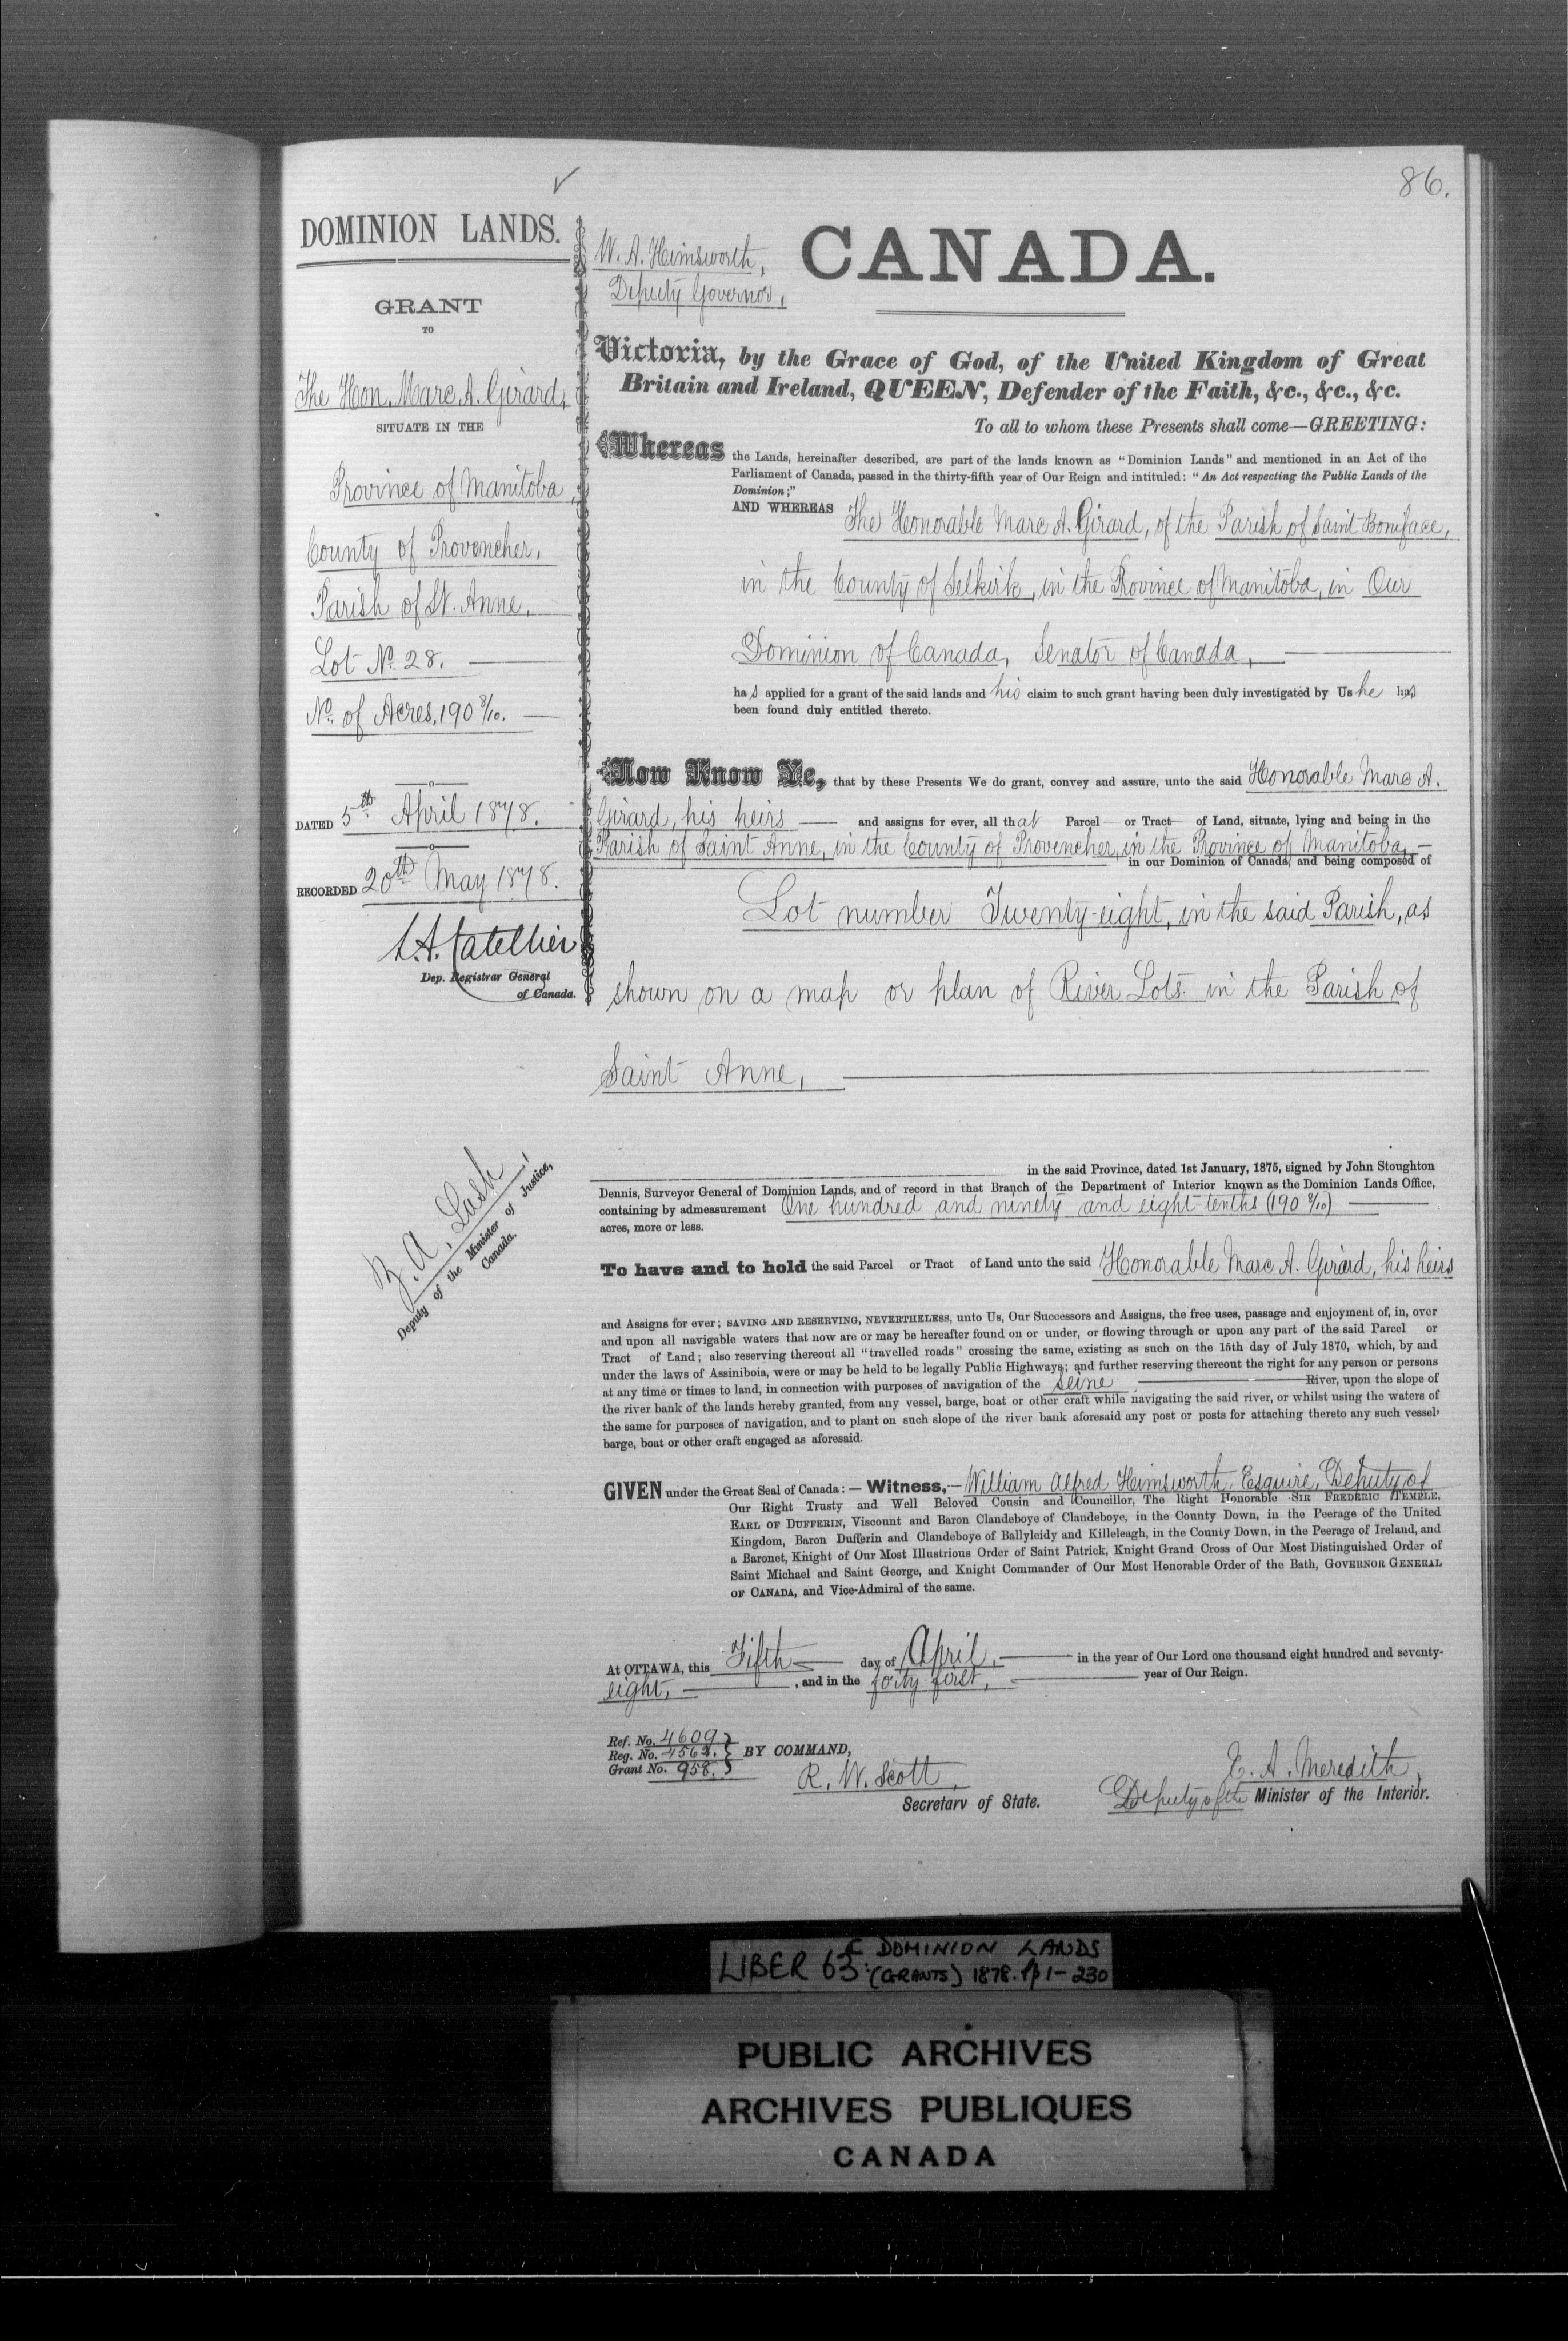 86.
DOMINION LANDS.
GRANT
TO
The Hon. Marc A. Girard,
SITUATE IN THE
Province of Manitoba,
County of Provencher,
Parish of St. Anne,
Lot No. 28.
No. of Acres, 190 8/10.
DATED 5th April 1878.
RECORDED 20th May 1878.
L.A. Catellier
Dep. Registrar General
of Canada.
Z. A. Lash,
Deputy of the Minister of Justice,
Canada.
W. A. Himsworth,
Deputy Governor,
CANADA.
Victoria, by the Grace of God, of the United Kingdom of Great
Britain and Ireland, QUEEN, Defender of the Faith, &c., &c., &c.
To all to whom these Presents shall come—GREETING:
Whereas the Lands, hereinafter described, are part of the lands known as "Dominion Lands" and mentioned in an Act of the
Parliament of Canada, passed in the thirty-fifth year of Our Reign and intituled: "An Act respecting the Public Lands of the
Dominion;"
AND WHEREAS The Honorable Marc A. Girard, of the Parish of Saint Boniface,
in the County of Selkirk, in the Province of Manitoba, in Our
Dominion of Canada, Senator of Canada,
has applied for a grant of the said lands and his claim to such grant having been duly investigated by Us he has
been found duly entitled thereto.
Now Know Ye, that by these Presents We do grant, convey and assure, unto the said Honorable Marc A.
Girard, his heirs — and assigns for ever, all that Parcel — or Tract — of Land, situate, lying and being in the
Parish of Saint Anne, in the County of Provencher, in the Province of Manitoba, —
in our Dominion of Canada, and being composed of
Lot number Twenty-eight, in the said Parish, as
shown on a map or plan of River Lots in the Parish of
Saint Anne,
in the said Province, dated 1st January, 1875, signed by John Stoughton
Dennis, Surveyor General of Dominion Lands, and of record in that Branch of the Department of Interior known as the Dominion Lands Office,
containing by admeasurement One hundred and ninety and eight-tenths (190 8/10)
acres, more or less.
To have and to hold the said Parcel or Tract of Land unto the said Honorable Marc A. Girard, his heirs
and Assigns for ever; SAVING AND RESERVING, NEVERTHELESS, unto Us, Our Successors and Assigns, the free uses, passage and enjoyment of, in, over
and upon all navigable waters that now are or may be hereafter found on or under, or flowing through or upon any part of the said Parcel or
Tract of Land; also reserving thereout all "travelled roads" crossing the same, existing as such on the 15th day of July 1870, which, by and
under the laws of Assiniboia, were or may be held to be legally Public Highways; and further reserving thereout the right for any person or persons
at any time or times to land, in connection with purposes of navigation of the Seine River, upon the slope of
the river bank of the lands hereby granted, from any vessel, barge, boat or other craft while navigating the said river, or whilst using the waters of
the same for purposes of navigation, and to plant on such slope of the river bank aforesaid any post or posts for attaching thereto any such vessel,
barge, boat or other craft engaged as aforesaid.
GIVEN under the Great Seal of Canada:— Witness,— William Alfred Himsworth, Esquire, Deputy of
Our Right Trusty and Well Beloved Cousin and Councillor, The Right Honorable SIR FREDERIC TEMPLE,
EARL OF DUFFERIN, Viscount and Baron Clandeboye of Clandeboye, in the County Down, in the Peerage of the United
Kingdom, Baron Dufferin and Clandeboye of Ballyleidy and Killeleagh, in the County Down, in the Peerage of Ireland, and
a Baronet, Knight of Our Most Illustrious Order of Saint Patrick, Knight Grand Cross of Our Most Distinguished Order of
Saint Michael and Saint George, and Knight Commander of Our Most Honorable Order of the Bath, GOVERNOR GENERAL
OF CANADA, and Vice-Admiral of the same.
At OTTAWA, this Fifth day of April, in the year of Our Lord one thousand eight hundred and seventy-
eight, , and in the forty first, year of Our Reign.
Ref. No. 4609.
Reg. No. 4562.
Grant No. 958.
BY COMMAND,
R. W. Scott,
Secretary of State.
E. A. Meredith,
Deputy of the Minister of the Interior.
LIBER 63: C DOMINION LANDS
(GRANTS) 1878. pp 1-230
PUBLIC ARCHIVES
ARCHIVES PUBLIQUES
CANADA